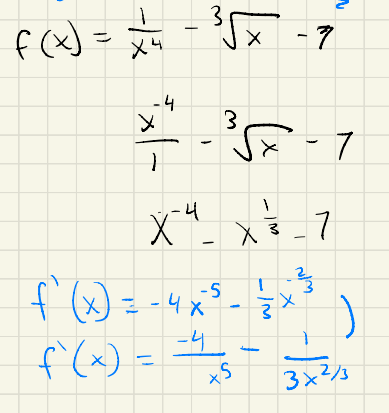 f(x) = 1/x⁴ - ³√x - 7
x⁻⁴/1 - ³√x - 7
x⁻⁴ - x^(1/3) - 7
f'(x) = -4x⁻⁵ - 1/3 x^(-2/3) )
f'(x) = -4/x⁵ - 1/(3x^(2/3))